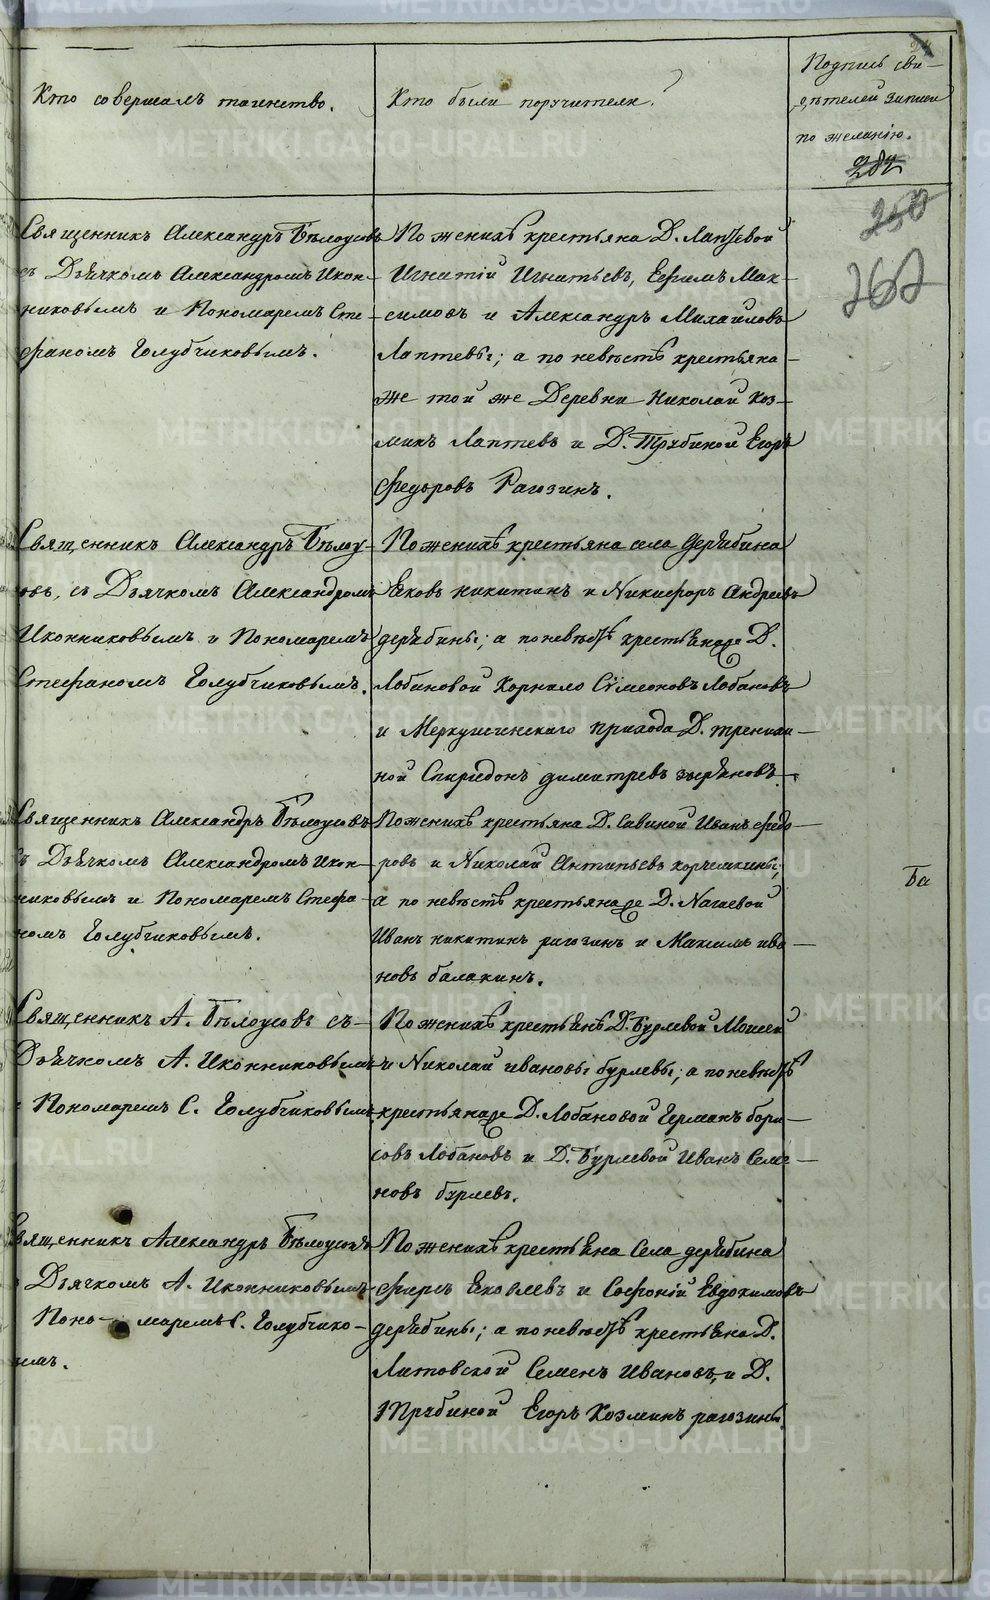 Кто совершалъ таинство.
Кто были поручители.
Подпись сви-
дѣтелей записи
по желанію.
282
250
262
Священникъ Александръ Бѣлоусовъ
съ Дьячкомъ Александромъ Икон-
никовымъ и Пономаремъ Сте-
фаномъ Голубчиковымъ.
По женихѣ крестьяна Д. Лаптевой
Игнатій Игнатьевъ, Ефимъ Мак-
симовъ и Александръ Михайловъ
Лаптевы; а по невѣстѣ крестьяна
же той же Деревни Николай Коз-
минъ Лаптевъ и Д. Трубиной Егоръ
Федоровъ Рагозинъ.
Священникъ Александръ Бѣлоу-
совъ, съ Дьячкомъ Александромъ
Иконниковымъ и Пономаремъ
Стефаномъ Голубчиковымъ.
По женихѣ крестьяна села Дерябина
Яковъ никитинъ и Никифоръ Андреевъ
дерябины; а по невѣстѣ крестьяна же Д.
Лобановой Корнило Сѵмеоновъ Лобановъ
и Меркушинскаго прихода Д.
ной Спиридонъ димитревъ зыряновъ.
Священникъ Александръ Бѣлоусовъ
съ Дьячкомъ Александромъ Икон-
никовымъ и Пономаремъ Стефа-
номъ Голубчиковымъ.
По женихѣ крестьяна Д. Савиной Иванъ федо-
ровъ и Николай Антипьевъ корчемкины;
а по невѣстѣ крестьяна же Д. Нагаевой
Иванъ никитинъ рагозинъ и Максимъ ива-
новъ балакинъ.
Ба
Священникъ А. Бѣлоусовъ съ
Дьячкомъ А. Иконниковымъ
и Пономаремъ С. Голубчиковымъ
По женихѣ крестьянѣ Д. Бурлевой Моисей
и Николай ивановы бурлевы; а по невѣстѣ
крестьяна же Д. Лобановой Германъ бори-
совъ Лобановъ и Д. Бурлевой Иванъ Семе-
новъ бурлевъ.
Священникъ Александръ Бѣлоусовъ
Дьячкомъ А. Иконниковымъ
Поно-маремъ С. Голубчико-
вымъ.
По женихѣ крестьяна Села дерябина
фирсъ Яковлевъ и Софоній Евдокимовъ
дерябины; а по невѣстѣ крестьяна Д.
Литовской Семенъ Ивановъ, и Д.
Трубиной Егоръ Козминъ рагозины.
METRIKI.GASO-URAL.RU